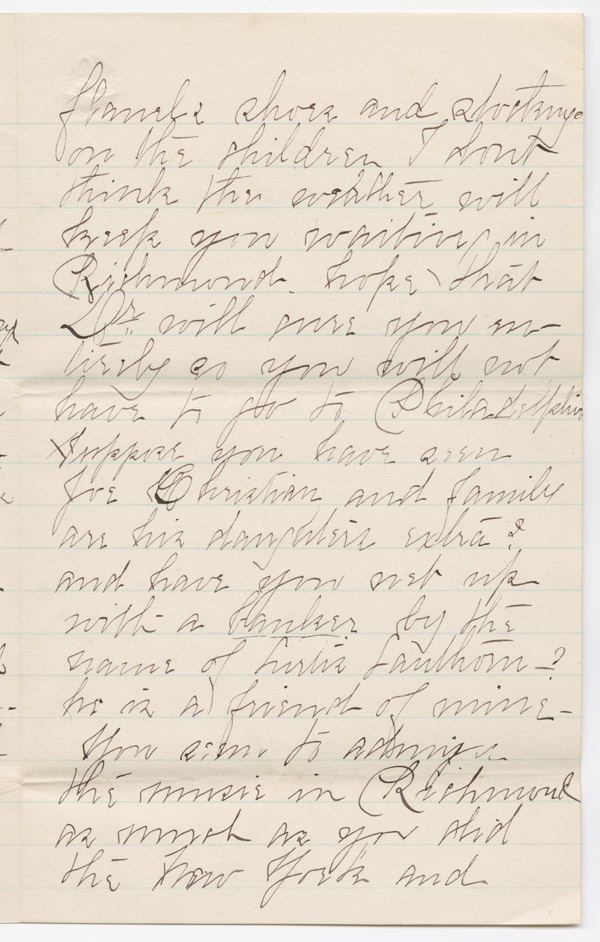 flanels shoes and stockings
on the children I dont
think the weather will
keep you waiting in
Richmond. hope that
Dr. will cure you en-
tirely so you will not
have to go to Philadelphia
Suppose you have seen
Joe Christian and family
are his daughters extra?
and have you met up
with a banker by the
name of Curtis
he is a friend of mine-
You seem to admire
the music in Richmond
as much as you did
the New York and